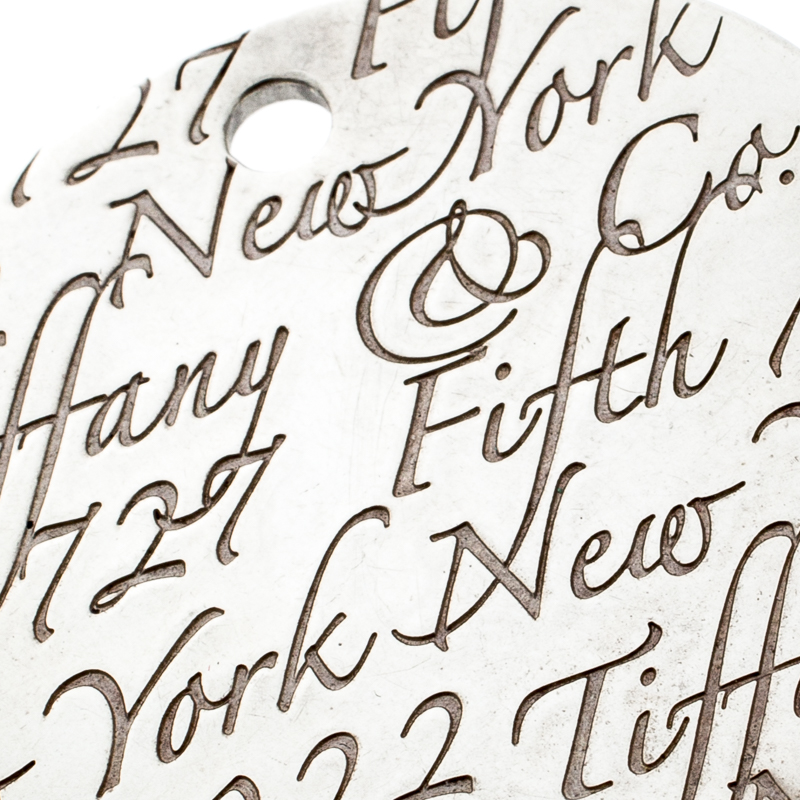 27 Fi
New York
Tiffany & Co.
727 Fifth
York New
022 Tiff